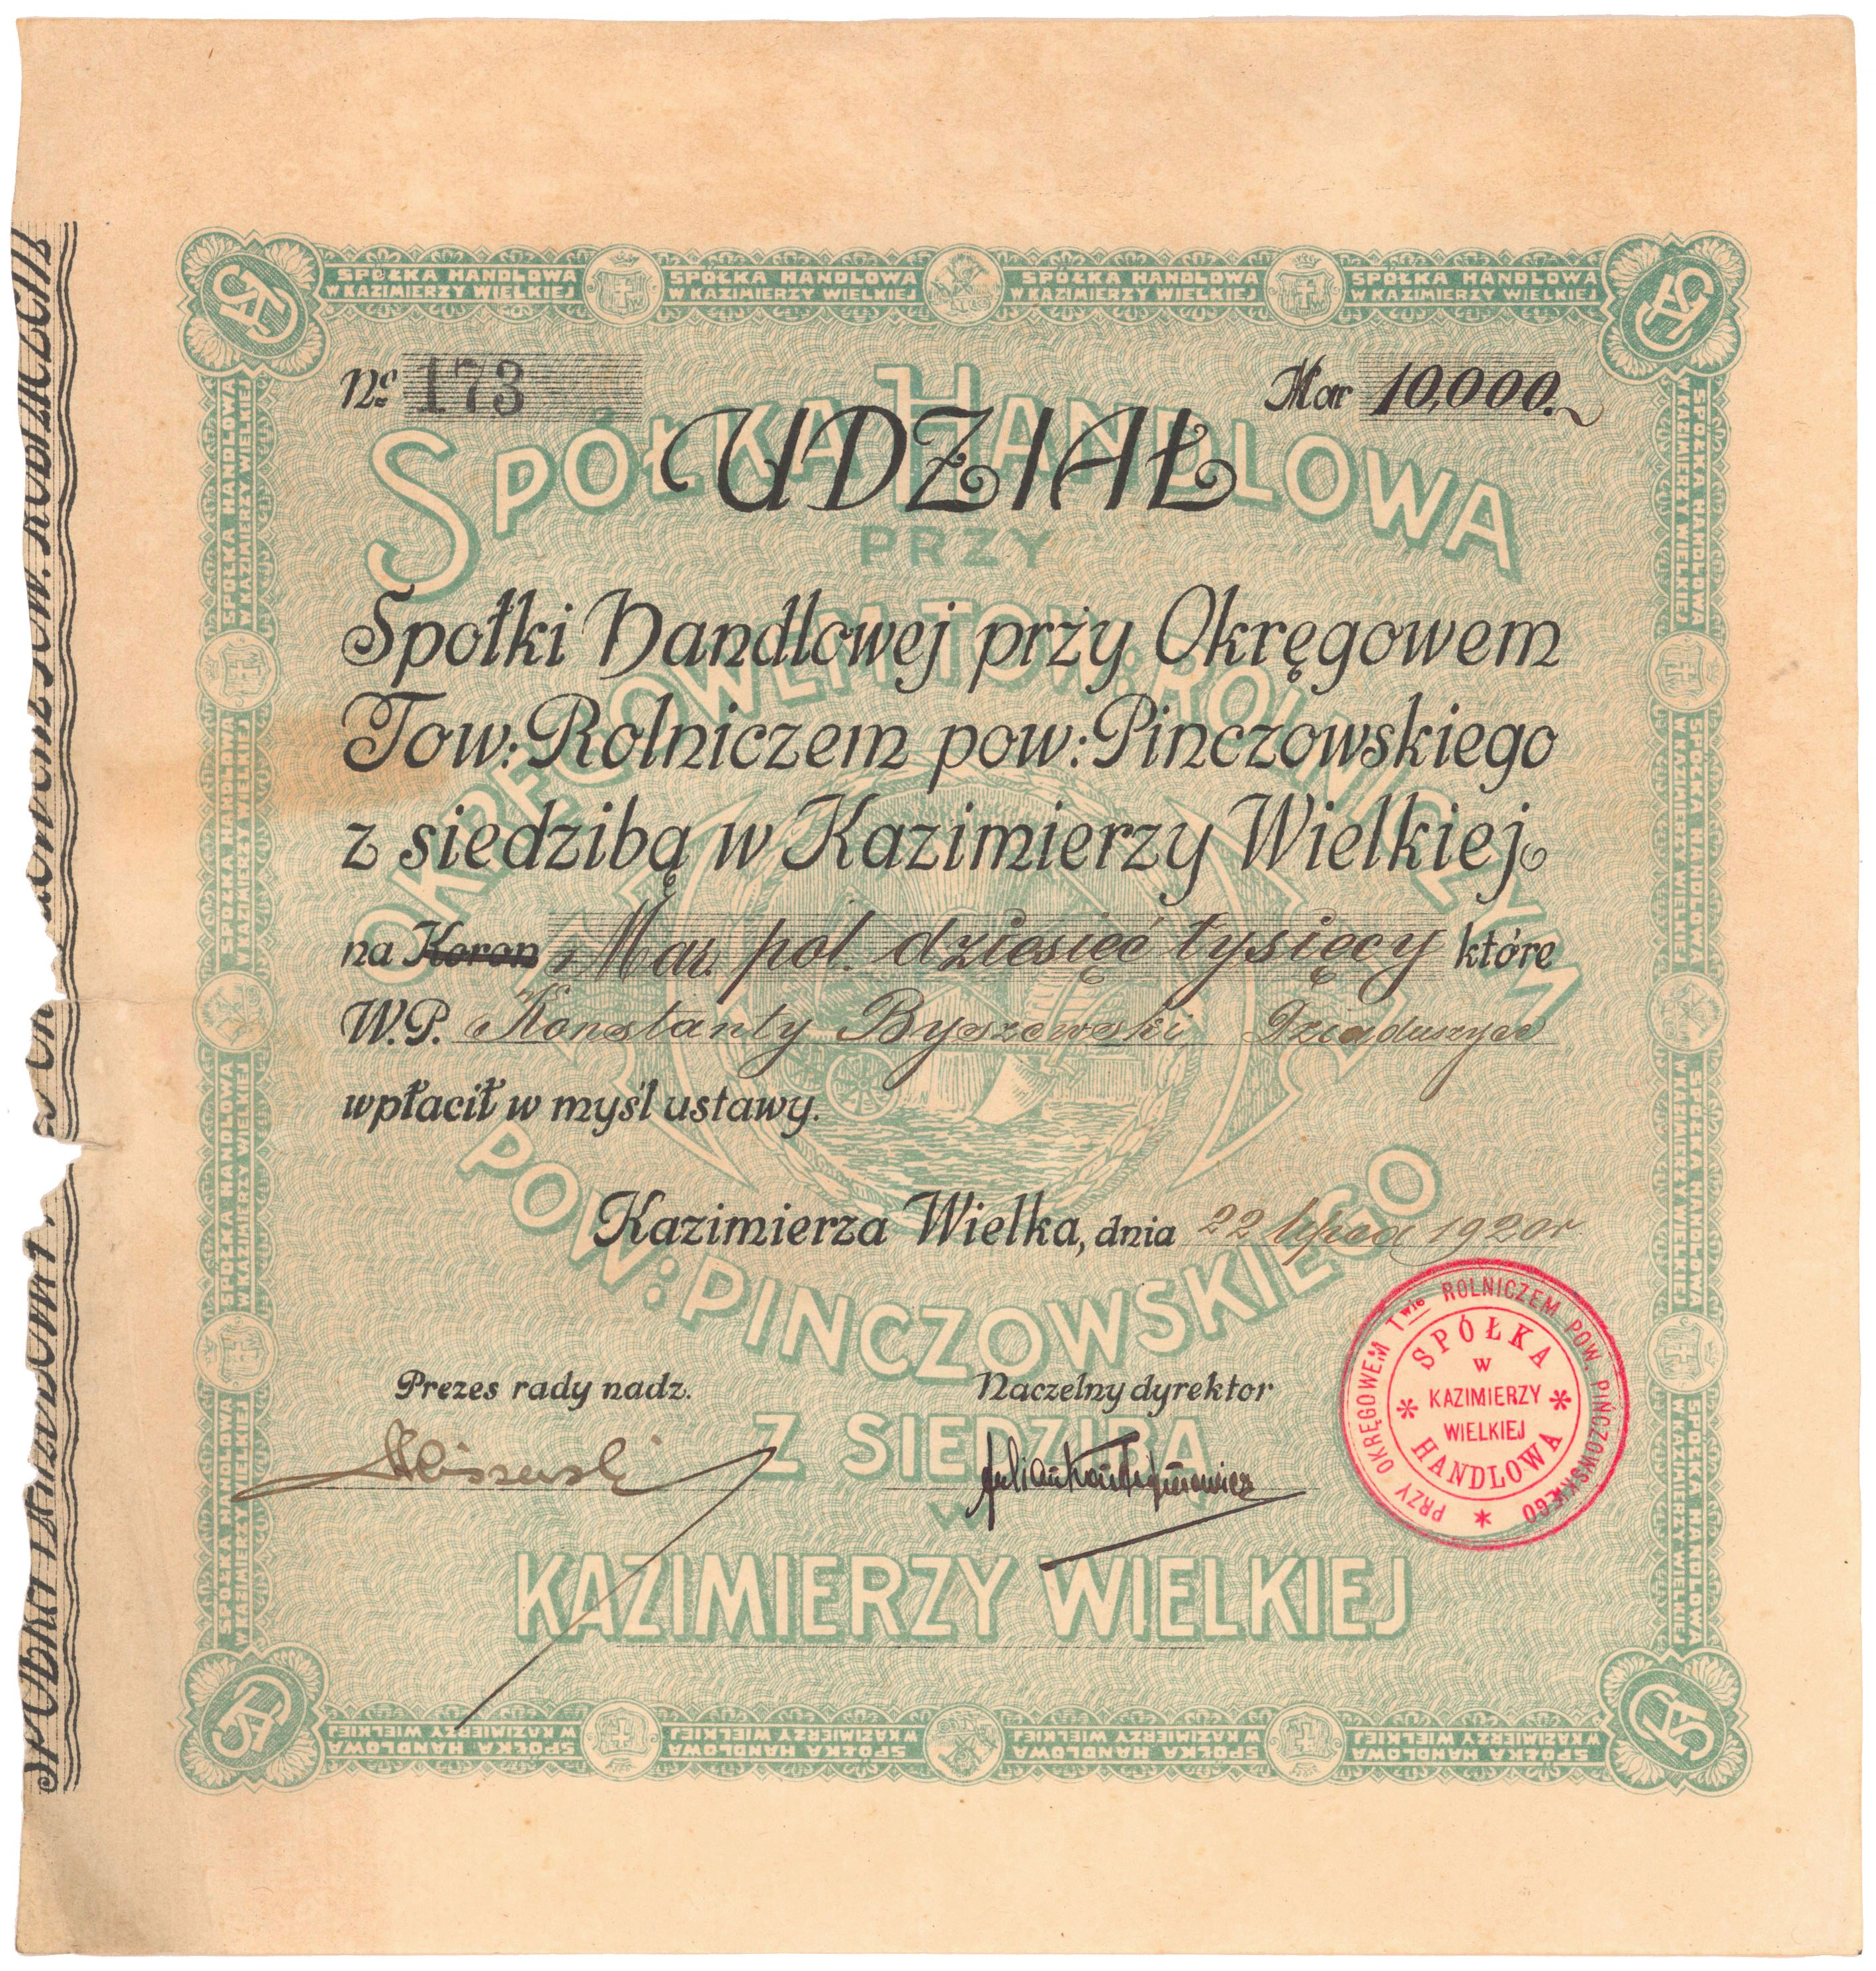 SPÓŁKA HANDLOWA W KAZIMIERZY WIELKIEJ
SPÓŁKA HANDLOWA W KAZIMIERZY WIELKIEJ
SPÓŁKA HANDLOWA W KAZIMIERZY WIELKIEJ
SPÓŁKA HANDLOWA W KAZIMIERZY WIELKIEJ
No 173
Mar 10,000.
SPÓŁKA HANDLOWA
UDZIAŁ
PRZY
OKRĘGOWEM TOW: ROLNICZYM
Społki Handlowej przy Okręgowem
Tow: Rolniczem pow: Pinczowskiego
z siedzibą w Kazimierzy Wielkiej
na Koron Mar. pol. dziesięć tysięcy które
W.P. Konstanty Byszewski
wpłacił w myśl ustawy.
POW: PINCZOWSKIEGO
Kazimierza Wielka, dnia 22 lipca 1920 r.
Prezes rady nadz.
Naczelny dyrektor
Z SIEDZIBĄ
W
KAZIMIERZY WIELKIEJ
PRZY OKRĘGOWEM Twie ROLNICZEM POW. PIŃCZOWSKIEGO
SPÓŁKA
W
KAZIMIERZY
WIELKIEJ
HANDLOWA
SPÓŁKA HANDLOWA W KAZIMIERZY WIELKIEJ
SPÓŁKA HANDLOWA W KAZIMIERZY WIELKIEJ
SPÓŁKA HANDLOWA W KAZIMIERZY WIELKIEJ
SPÓŁKA HANDLOWA W KAZIMIERZY WIELKIEJ